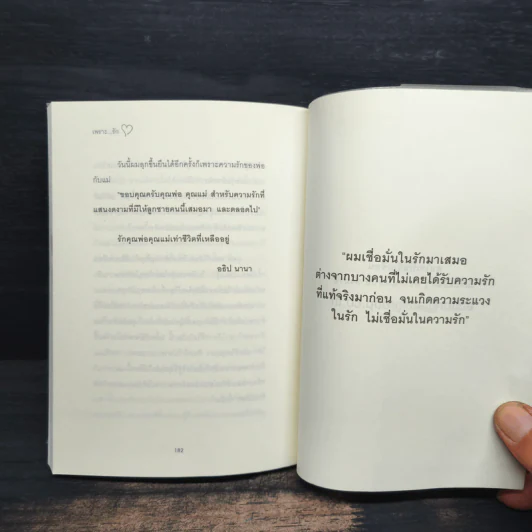 วันนี้ผมลุกขึ้นยืนได้อีกครั้งก็เพราะความรักของพ่อ
กับแม่
"ขอบคุณครับคุณพ่อ คุณแม่ สำหรับความรักที่
แสนงดงามที่มีให้ลูกชายคนนี้เสมอมา และตลอดไป"
รักคุณพ่อคุณแม่เท่าชีวิตที่เหลืออยู่
อธิป นานา
"ผมเชื่อมั่นในรักมาเสมอ
ต่างจากบางคนที่ไม่เคยได้รับความรัก
ที่แท้จริงมาก่อน จนเกิดความระแวง
ในรัก ไม่เชื่อมั่นในความรัก"